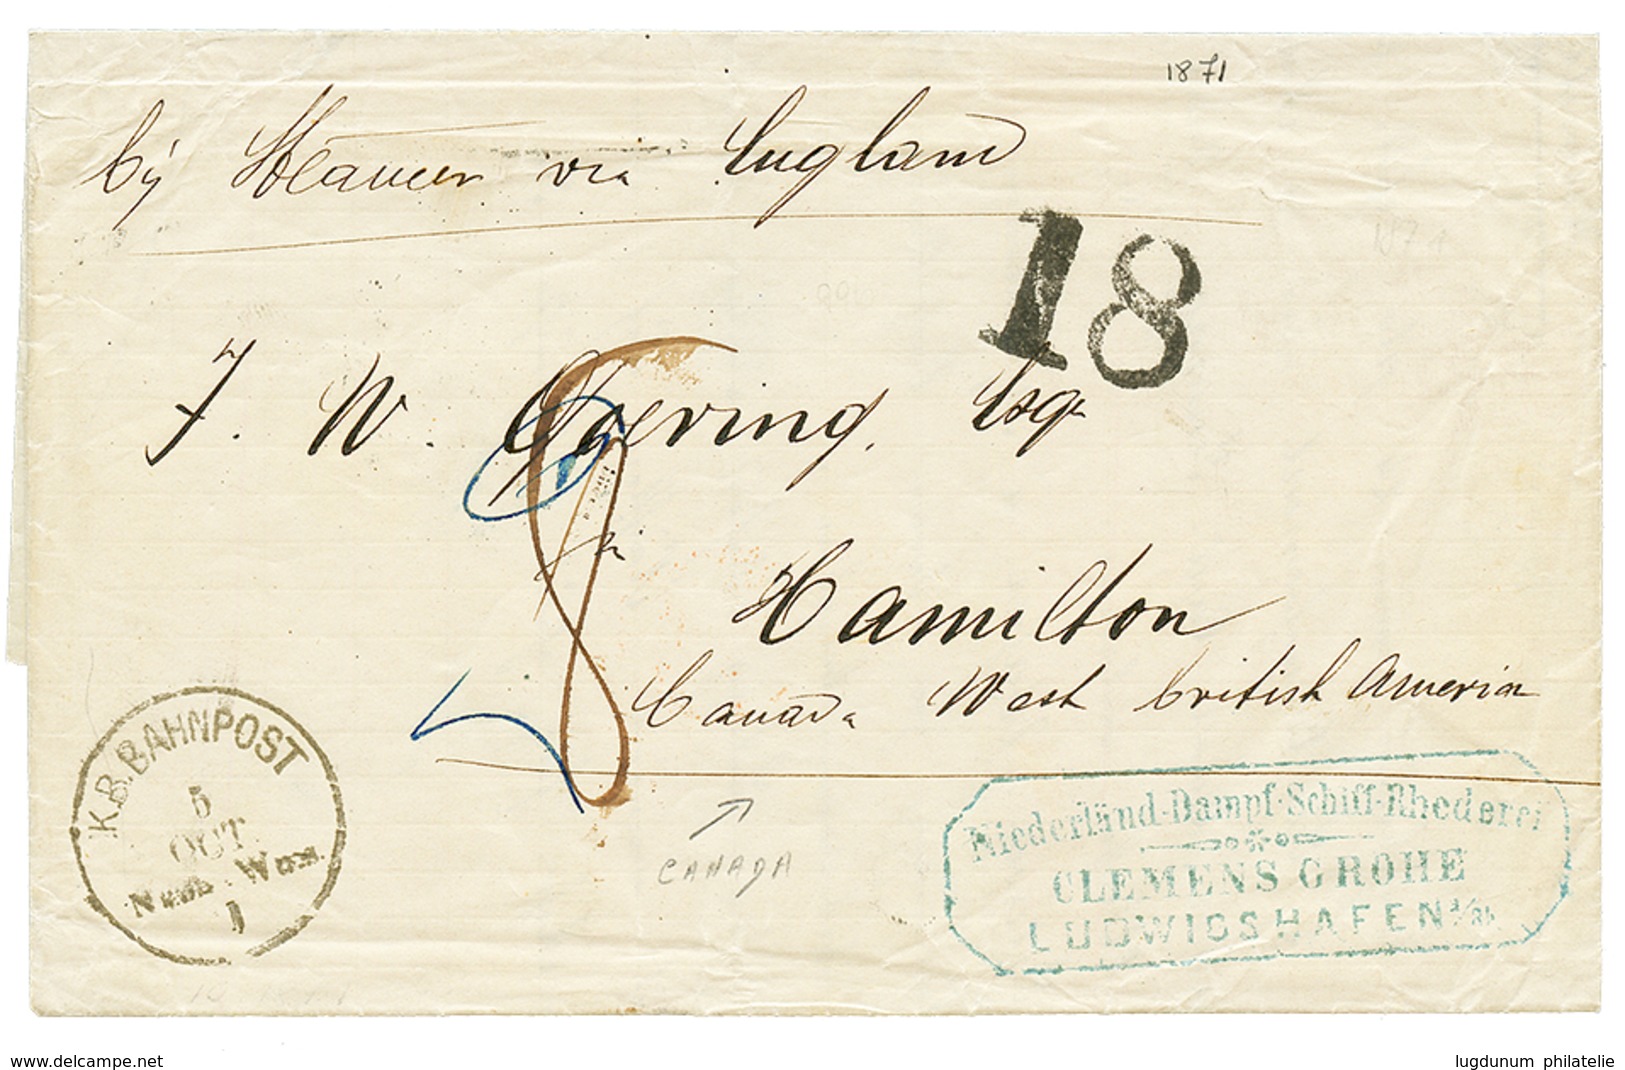 1871
by Steamer via England
18
1871
J. W. Goering, Esqr
8
Hamilton
Canada West british America
K.B.BAHNPOST
5
OCT
1
CANADA
Niederländ-Dampf-Schiff-Rhederei
CLEMENS GROHE
LUDWIGSHAFEN a/Rh.
www.delcampe.net
lugdunum philatelie